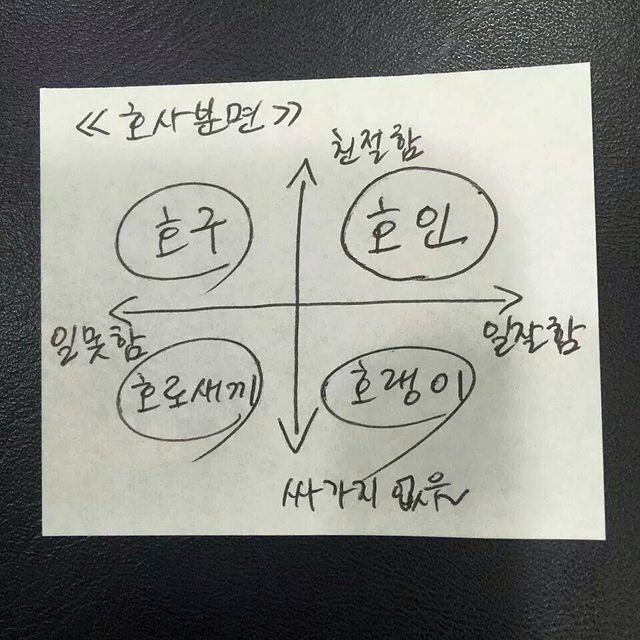 <<호사분면>>
친절함
호구
호인
일못함
일잘함
호로새끼
호랭이
싸가지 없유~